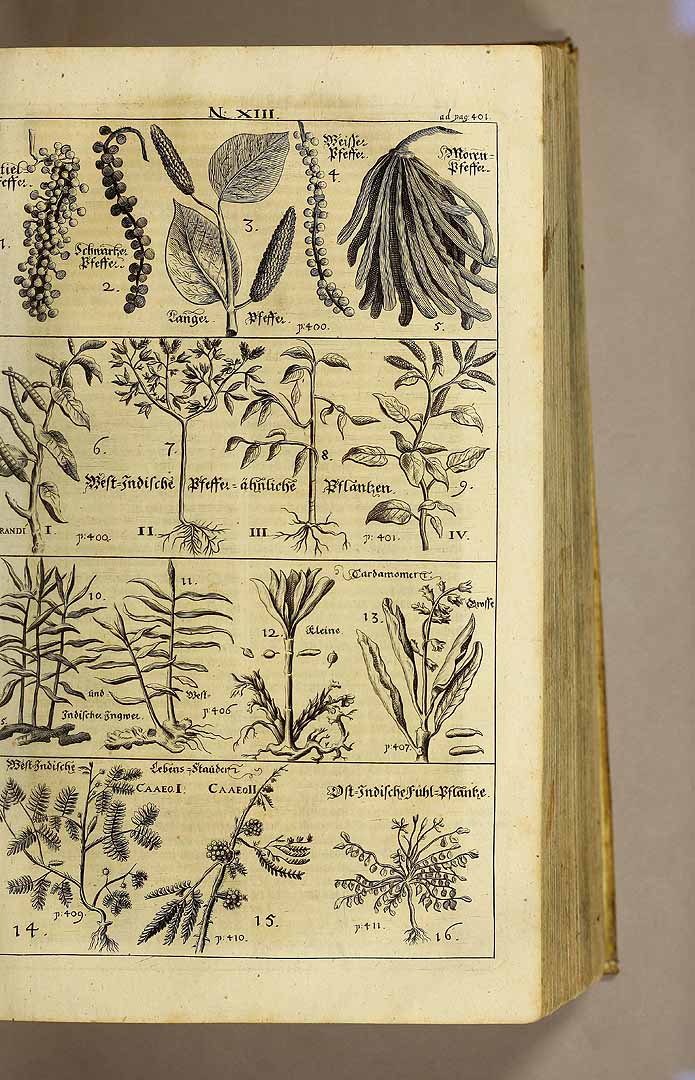 N: XIII.
ad pag: 401.
Weisser
Pfeffer.
4.
Moren=
Pfeffer.
1.
3.
Schwartzer
Pfeffer.
2.
Langer Pfeffer.
p: 400.
5.
6.
7.
8.
West-Indische Pfeffer=ähnliche Pfläntzen.
9.
I.
p: 400.
II.
III.
p: 401.
IV.
Cardamomen
11.
10.
12.
Kleine
13.
Grosse
und West-
Indischer Ingwer.
p: 406
p: 407.
West-Indische Lebens=Stauden
CAAEO. I. CAAEO II.
Ost-Indische Fühl=Pfläntze.
p: 409.
14.
15.
p: 410.
p: 411.
16.